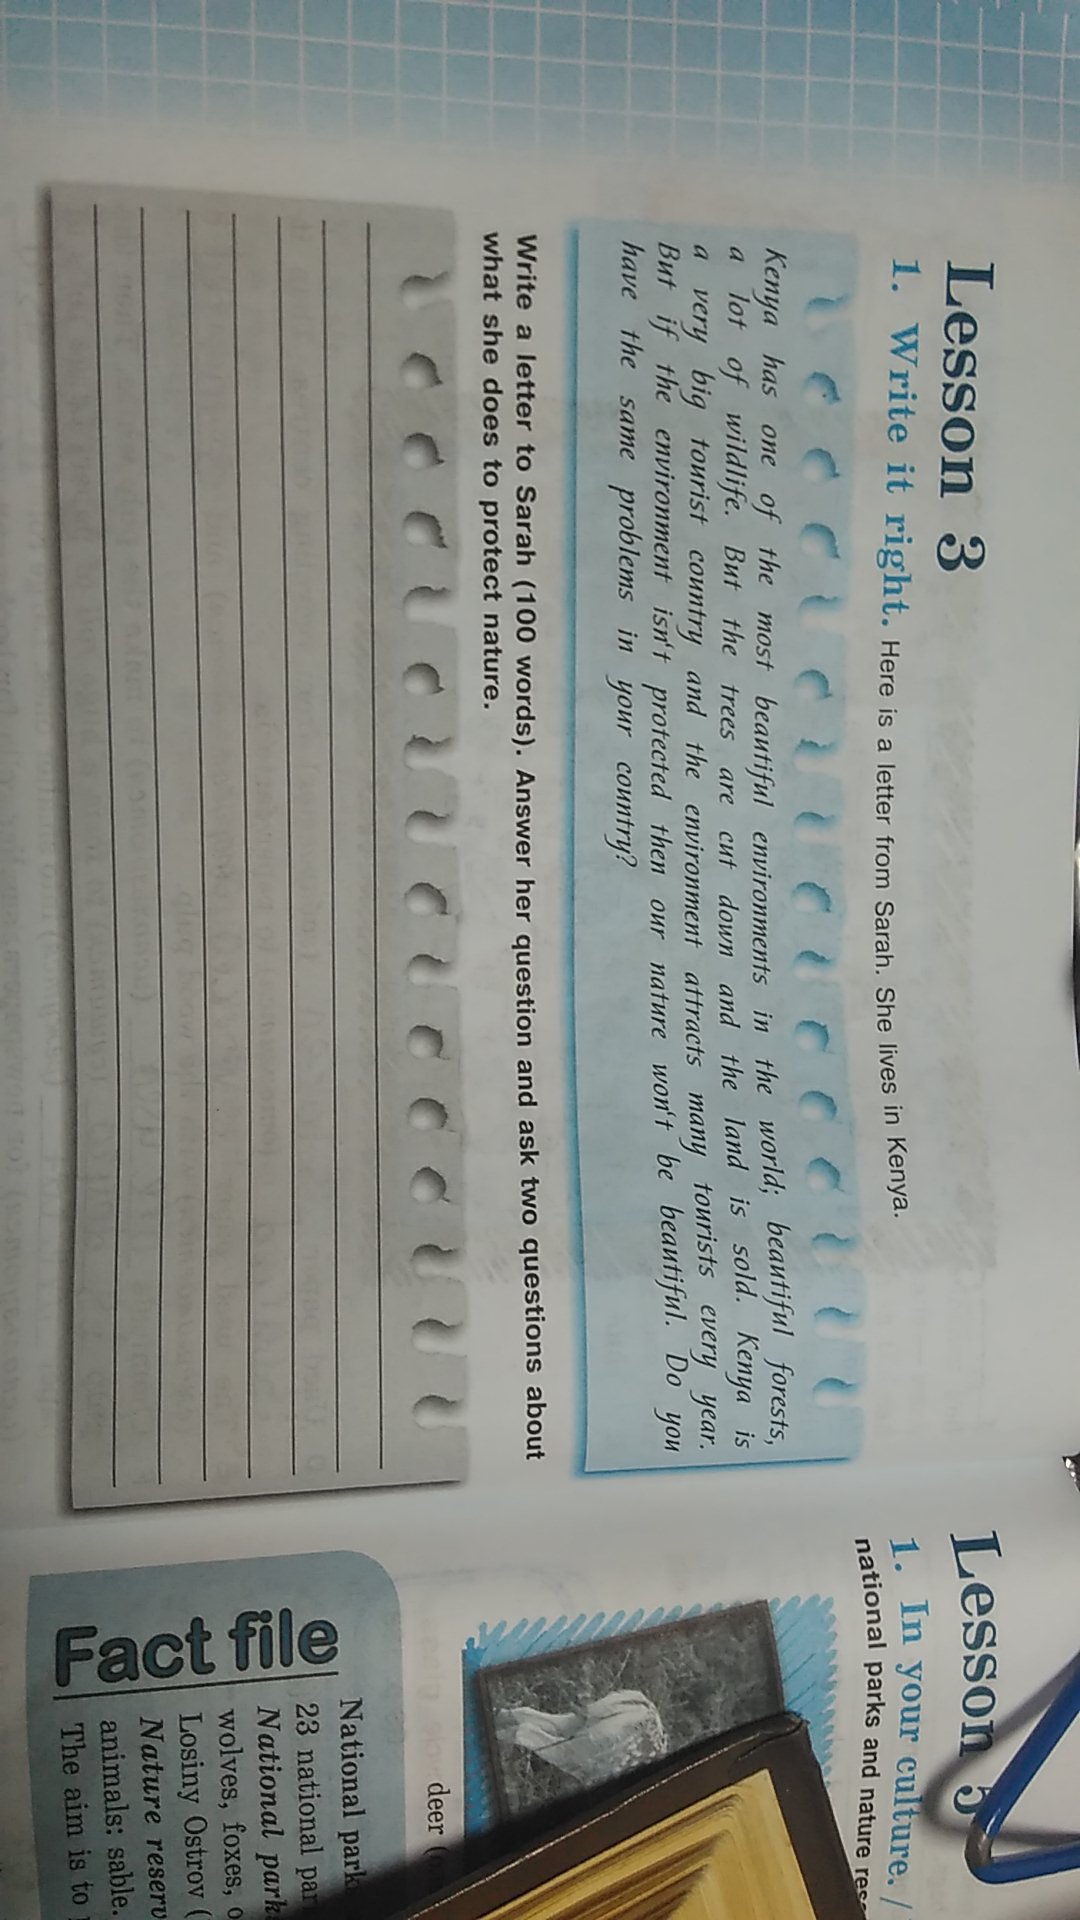 Lesson 3
1. Write it right. Here is a letter from Sarah. She lives in Kenya.
Kenya has one of the most beautiful environments in the world; beautiful forests,
a lot of wildlife. But the trees are cut down and the land is sold. Kenya is
a very big tourist country and the environment attracts many tourists every year.
But if the environment isn't protected then our nature won't be beautiful. Do you
have the same problems in your country?
Write a letter to Sarah (100 words). Answer her question and ask two questions about
what she does to protect nature.
Lesson 5
1. In your culture. /
national parks and nature
deer
Fact file
National
23 national
National
wolves, foxes,
Losiny Ostrov (
Nature
animals: sable.
The aim is to